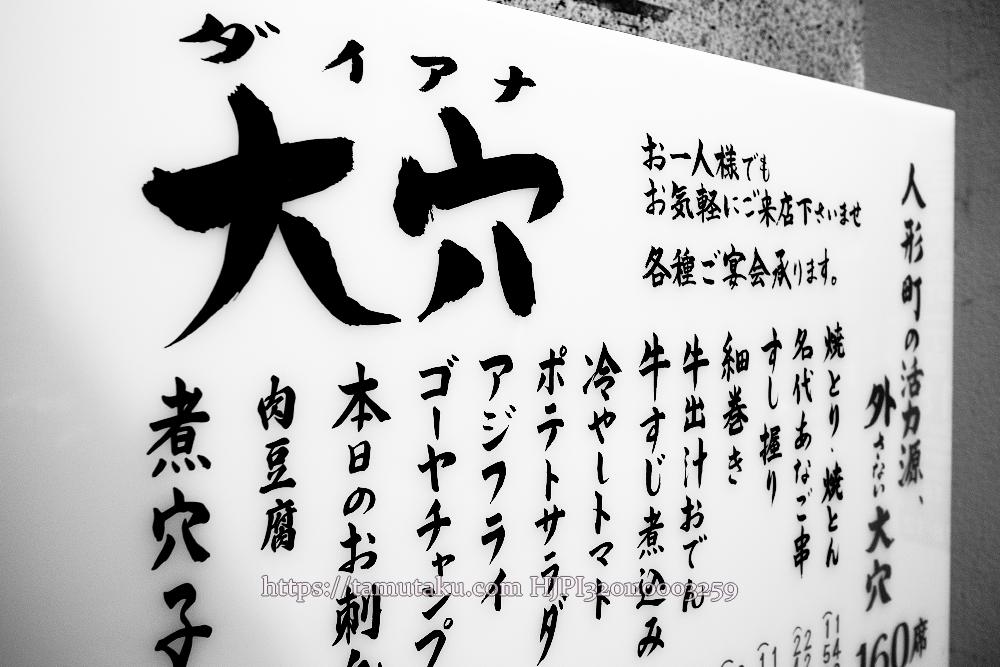 ダイアナ
大穴
お一人様でも
お気軽にご来店下さいませ
各種ご宴会承ります。
人形町の活力源、
外さない大穴
160席
焼とり・焼とん
名代あなご串
すし握り
細巻き
牛出汁おでん
牛すじ煮込み
冷やしトマト
ポテトサラダ
アジフライ
ゴーヤチャンプ
本日のお刺
肉豆腐
煮穴子
https://tamutaku.com HJPI320110003259